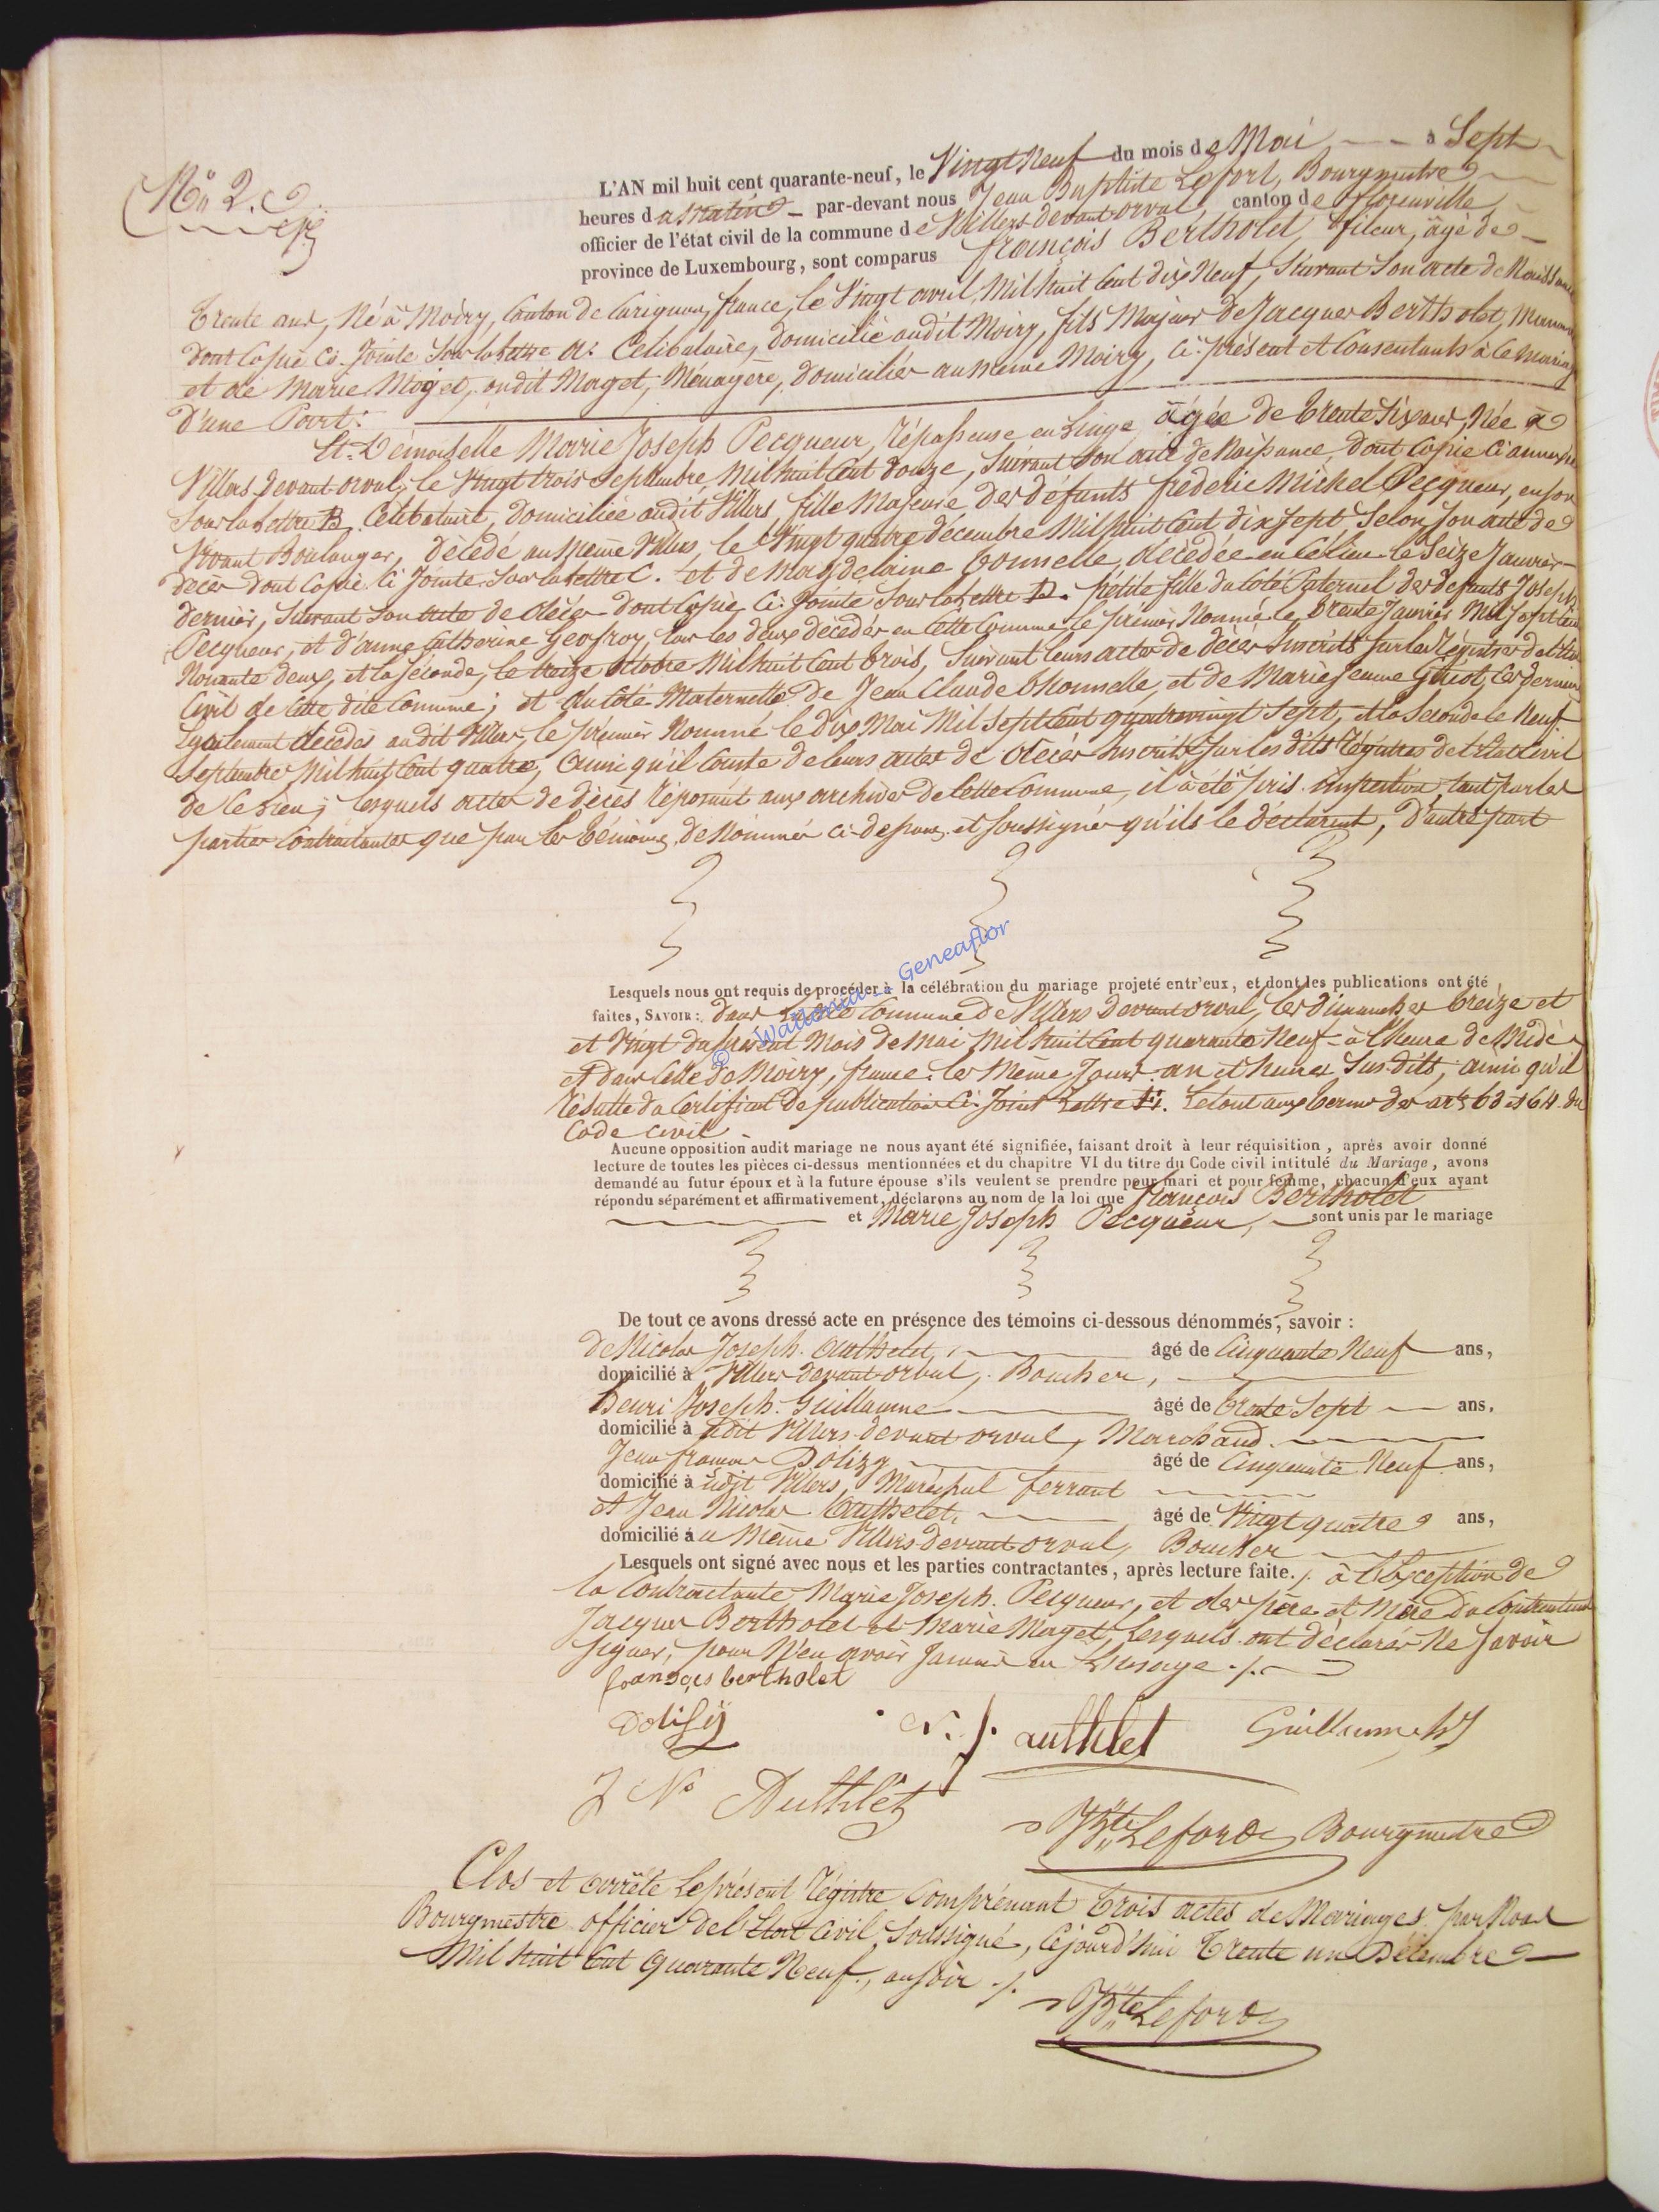 Nº 2.
L'AN mil huit cent quarante-neuf, le Vingt Neuf du mois de Mai à Sept
heures du Matin par-devant nous Jean Baptiste Lefort, Bourgmestre
officier de l'état civil de la commune de Villers devant orval canton de florenville
province de Luxembourg, sont comparus françois Bertholet, fileur, âgé de
trente ans, Né à Moiry, Canton de Carignan, france, le Vingt avril, Mil huit Cent dix Neuf, Suivant Son acte de Naissance
dont Copie Ci-Jointe Sous la lettre A. Célibataire, domicilié audit Moiry, fils Majeur de Jacques Bertholet,
et de Marie Moget, ou dit Maget, Ménagère, domiciliés au même Moiry, Ci-présent et Consentants à Ce mariage
D'une Part.
Et Demoiselle Marie Joseph Pecqueur, Répasseuse en Linge âgée de trente Six ans, Née à
Villers devant orval, le Vingt trois Septembre, Mil huit Cent douze, Suivant Son acte de Naissance, dont Copie Ci annexée
Sous la lettre B. Célibataire, domiciliée audit Villers, fille Majeure des défunts frédéric Michel Pecqueur, en son
Vivant Boulanger, décédé au même Villers, le Vingt quatre décembre Mil huit Cent dix Sept, Selon Son acte de
décès dont Copie Ci Jointe Sous la lettre C. et de Magdelaine Thonnelle, décédée en Ce lieu le Seize Janvier
dernier, Suivant Son acte de décès dont Copie Ci-Jointe Sous la lettre D. Petite fille du Coté Paternel des défunts Joseph
Pecqueur, et d'anne Catherine Geofroy, tous les deux décédés en Cette Commune le prémier Nommé le trente Janvier Mil Sept Cent
Nonante deux, et la Séconde, le treize octobre Mil huit Cent trois, Suivant leurs actes de décès Inscrits Sur les Régistres de l'état
Civil de Cette dite Commune; et du Coté Maternelle de Jean Claude thonnelle, et de Marie Jeanne Guiot, Ces derniers
Egalement décédés audit Villers, le prémier Nommé le dix Mai Mil Sept Cent quatrevingt Sept, et la Seconde le Neuf
Septembre Mil huit Cent quatre, Ainsi qu'il Conste de leurs actes de décès Inscrits Sur les dits Régistres de l'état Civil
de Ce Lieu; lesquels actes de décès réposent aux archives de Cette Commune, il a été pris inspection tant par les
parties Contractantes que par les témoins, dénommés ci-dessous et soussignés qu'ils le déclarent, D'autre part
Lesquels nous ont requis de procéder à la célébration du mariage projeté entr'eux, et dont les publications ont été
faites, SAVOIR: dans Cette Commune de Villers devant orval, les dimanches treize et
et Vingt du présent Mois de Mai Mil huit Cent quarante Neuf à l'heure de Midi
et dans Celle de Moiry, france. les Même Jours an et heures Sus-dits, ainsi qu'il
Résulte du Certificat de publication Ci-Joint Lettre E. Le tout aux termes des arts 63 et 64 du
Code Civil
Aucune opposition audit mariage ne nous ayant été signifiée, faisant droit à leur réquisition, après avoir donné
lecture de toutes les pièces ci-dessus mentionnées et du chapitre VI du titre du Code civil intitulé du Mariage, avons
demandé au futur époux et à la future épouse s'ils veulent se prendre pour mari et pour femme, chacun d'eux ayant
répondu séparément et affirmativement, déclarons au nom de la loi que françois Bertholet
et Marie Joseph Pecqueur, sont unis par le mariage
© Wallonia - Geneaflor
De tout ce avons dressé acte en présence des témoins ci-dessous dénommés, savoir :
de Nicolas Joseph Authelet, âgé de Cinquante Neuf ans,
domicilié à Villers devant orval, Boucher,
henri Joseph Guillaume âgé de trente Sept ans,
domicilié à udit Villers devant orval, Marchand
Jean françois Dolizy âgé de Cinquante Neuf ans,
domicilié à udit Villers, Maréchal ferrant
et Jean Nicolas Authelet, âgé de Vingt quatre ans,
domicilié à u Même Villers devant orval, Boucher
Lesquels ont signé avec nous et les parties contractantes, après lecture faite. à l'Exception de
la Contractante Marie Joseph Pecqueur, et des père et Mère du Contractant
Jacques Bertholet et Marie Maget, Lesquels ont déclarés Ne Savoir
Signer, pour N'en avoir Jamais eu L'usage ./.
françois bertholet
Dolisy N. J. authelet Guillaume hJ
J Nas Authelet
JBte Lefort Bourgmestre
Clos et arrêté le présent Régistre Comprénant trois actes de Mariages par Nous
Bourgmestre officier de l'Etat Civil Soussigné, Cejourd'hui trente un Décembre
Mil huit Cent quarante Neuf, au soir ./.
JBte Lefort